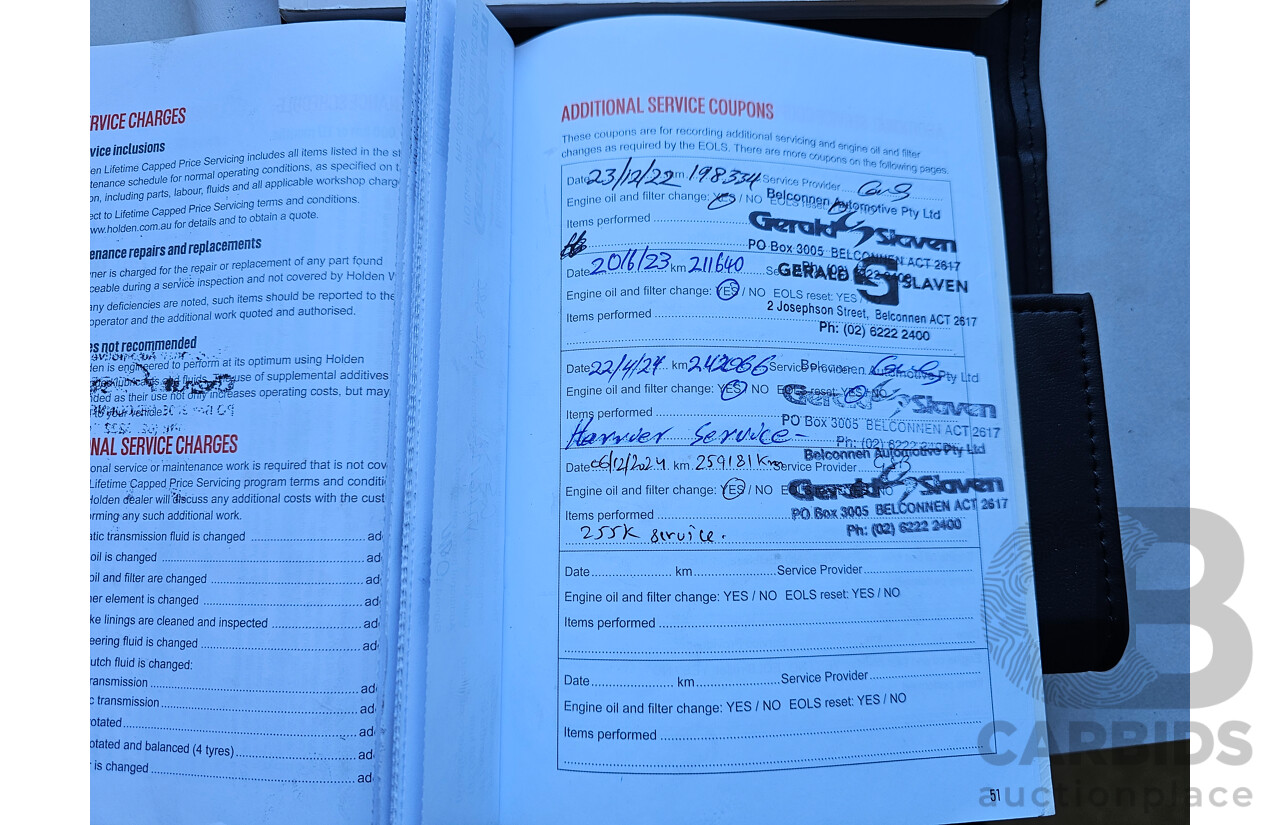 RVICE CHARGES
vice inclusions
en Lifetime Capped Price Servicing includes all items listed in the st
tenance schedule for normal operating conditions, as specified on t
n, including parts, labour, fluids and all applicable workshop charg
ect to Lifetime Capped Price Servicing terms and conditions.
ww.holden.com.au for details and to obtain a quote.
enance repairs and replacements
ner is charged for the repair or replacement of any part found
ceable during a service inspection and not covered by Holden W
any deficiencies are noted, such items should be reported to the
operator and the additional work quoted and authorised.
es not recommended
en is engineered to perform at its optimum using Holden
lubricants and fluids. The use of supplemental additives
ded as their use not only increases operating costs, but may
to your vehicle.
NAL SERVICE CHARGES
onal service or maintenance work is required that is not cov
Lifetime Capped Price Servicing program terms and conditi
Holden dealer will discuss any additional costs with the cust
orming any such additional work.
tic transmission fluid is changed ad
oil is changed ad
oil and filter are changed ad
er element is changed ad
ke linings are cleaned and inspected ad
eering fluid is changed ad
utch fluid is changed:
ransmission ad
c transmission ad
otated ad
otated and balanced (4 tyres) ad
r is changed ad
ADDITIONAL SERVICE COUPONS
These coupons are for recording additional servicing and engine oil and filter
changes as required by the EOLS. There are more coupons on the following pages.
Date 23/12/22 km 198334 Service Provider
Engine oil and filter change: YES / NO EOLS reset:
Belconnen Automotive Pty Ltd
Items performed
Gerald Slaven
PO Box 3005 BELCONNEN ACT 2617
Date 20/6/23 km 211640
GERALD S SLAVEN
Engine oil and filter change: YES / NO EOLS reset: YES /
2 Josephson Street, Belconnen ACT 2617
Items performed
Ph: (02) 6222 2400
Date 22/4/24 km 242966 Service Provider
Belconnen Automotive Pty Ltd
Engine oil and filter change: YES / NO EOLS reset: YES / NO
Gerald Slaven
Items performed
PO Box 3005 BELCONNEN ACT 2617
Service -
Belconnen Automotive Pty Ltd
Date 06/12/2024 km 259181 Kms Service Provider
Engine oil and filter change: YES / NO
Gerald Slaven
Items performed
PO Box 3005 BELCONNEN ACT 2617
255K service.
Ph: (02) 6222 2400
Date km Service Provider
Engine oil and filter change: YES / NO EOLS reset: YES / NO
Items performed
Date km Service Provider
Engine oil and filter change: YES / NO EOLS reset: YES / NO
Items performed
51
CARBIDS
auctionplace